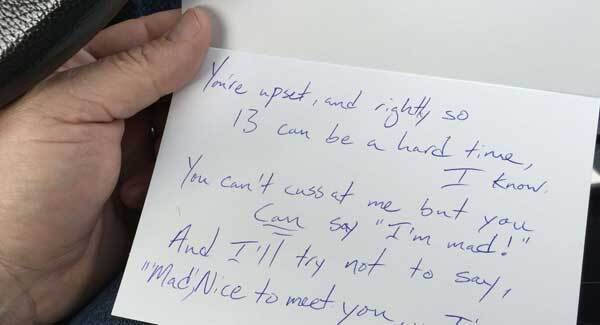 You're upset, and rightly so
13 can be a hard time,
I know.
You can't cuss at me but you
Can say "I'm mad!"
And I'll try not to say,
"Mad, Nice to meet you,